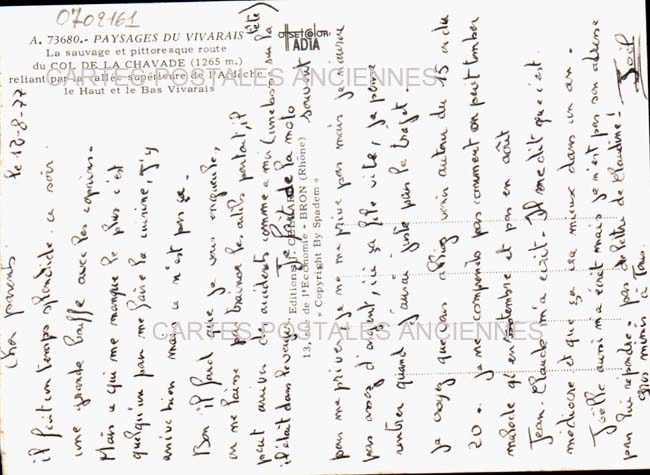 0702161
A. 73680.- PAYSAGES DU VIVARAIS
La sauvage et pittoresque route
du COL DE LA CHAVADE (1265 m.)
reliant par la vallée supérieure de l'Ardèche
le Haut et le Bas Vivarais
OFFSET COLOR
ADIA
Editions
13, de l'Economie - BRON (Rhône)
« Copyright By Spadem »
CARTES POSTALES ANCIENNES
CARTES POSTALES ANCIENNES
le 12-8-77
Cher parents.
il fait un temps splendide ce soir
une grande baffe avec les copains.
Mais ce qui me manque le plus c'est
quelqu'un pour me faire la cuisine, j'y
arrive bien mais ce n'est pas ça.
Bon il faut que je vous engueule,
on ne laisse pas traîner les allos partout, il
peut arriver des accidents comme à moi (une boste sur la tête)
il était dans le veuge. Je fait de la moto souvent
pour me priver je ne me prive pas mais je n'aurai
pas assez d'argent, ici ça file vite, je pense
rentrer quand j'aurai juste pour le trajet.
je croyez que vous alliez venir autour du 15 ou du
20. je ne comprends pas comment on peut tomber
malade qu'en septembre et pas en août
Jean Claude m'a écrit. Il me dit que c'est
médiocre et que ça ira mieux dans un an.
Joëlle aussi m'a écrit mais je n'est pas son adresse
pour lui répondre. pas de lettre de Claudine!
Gros mimis à tous.
Joël